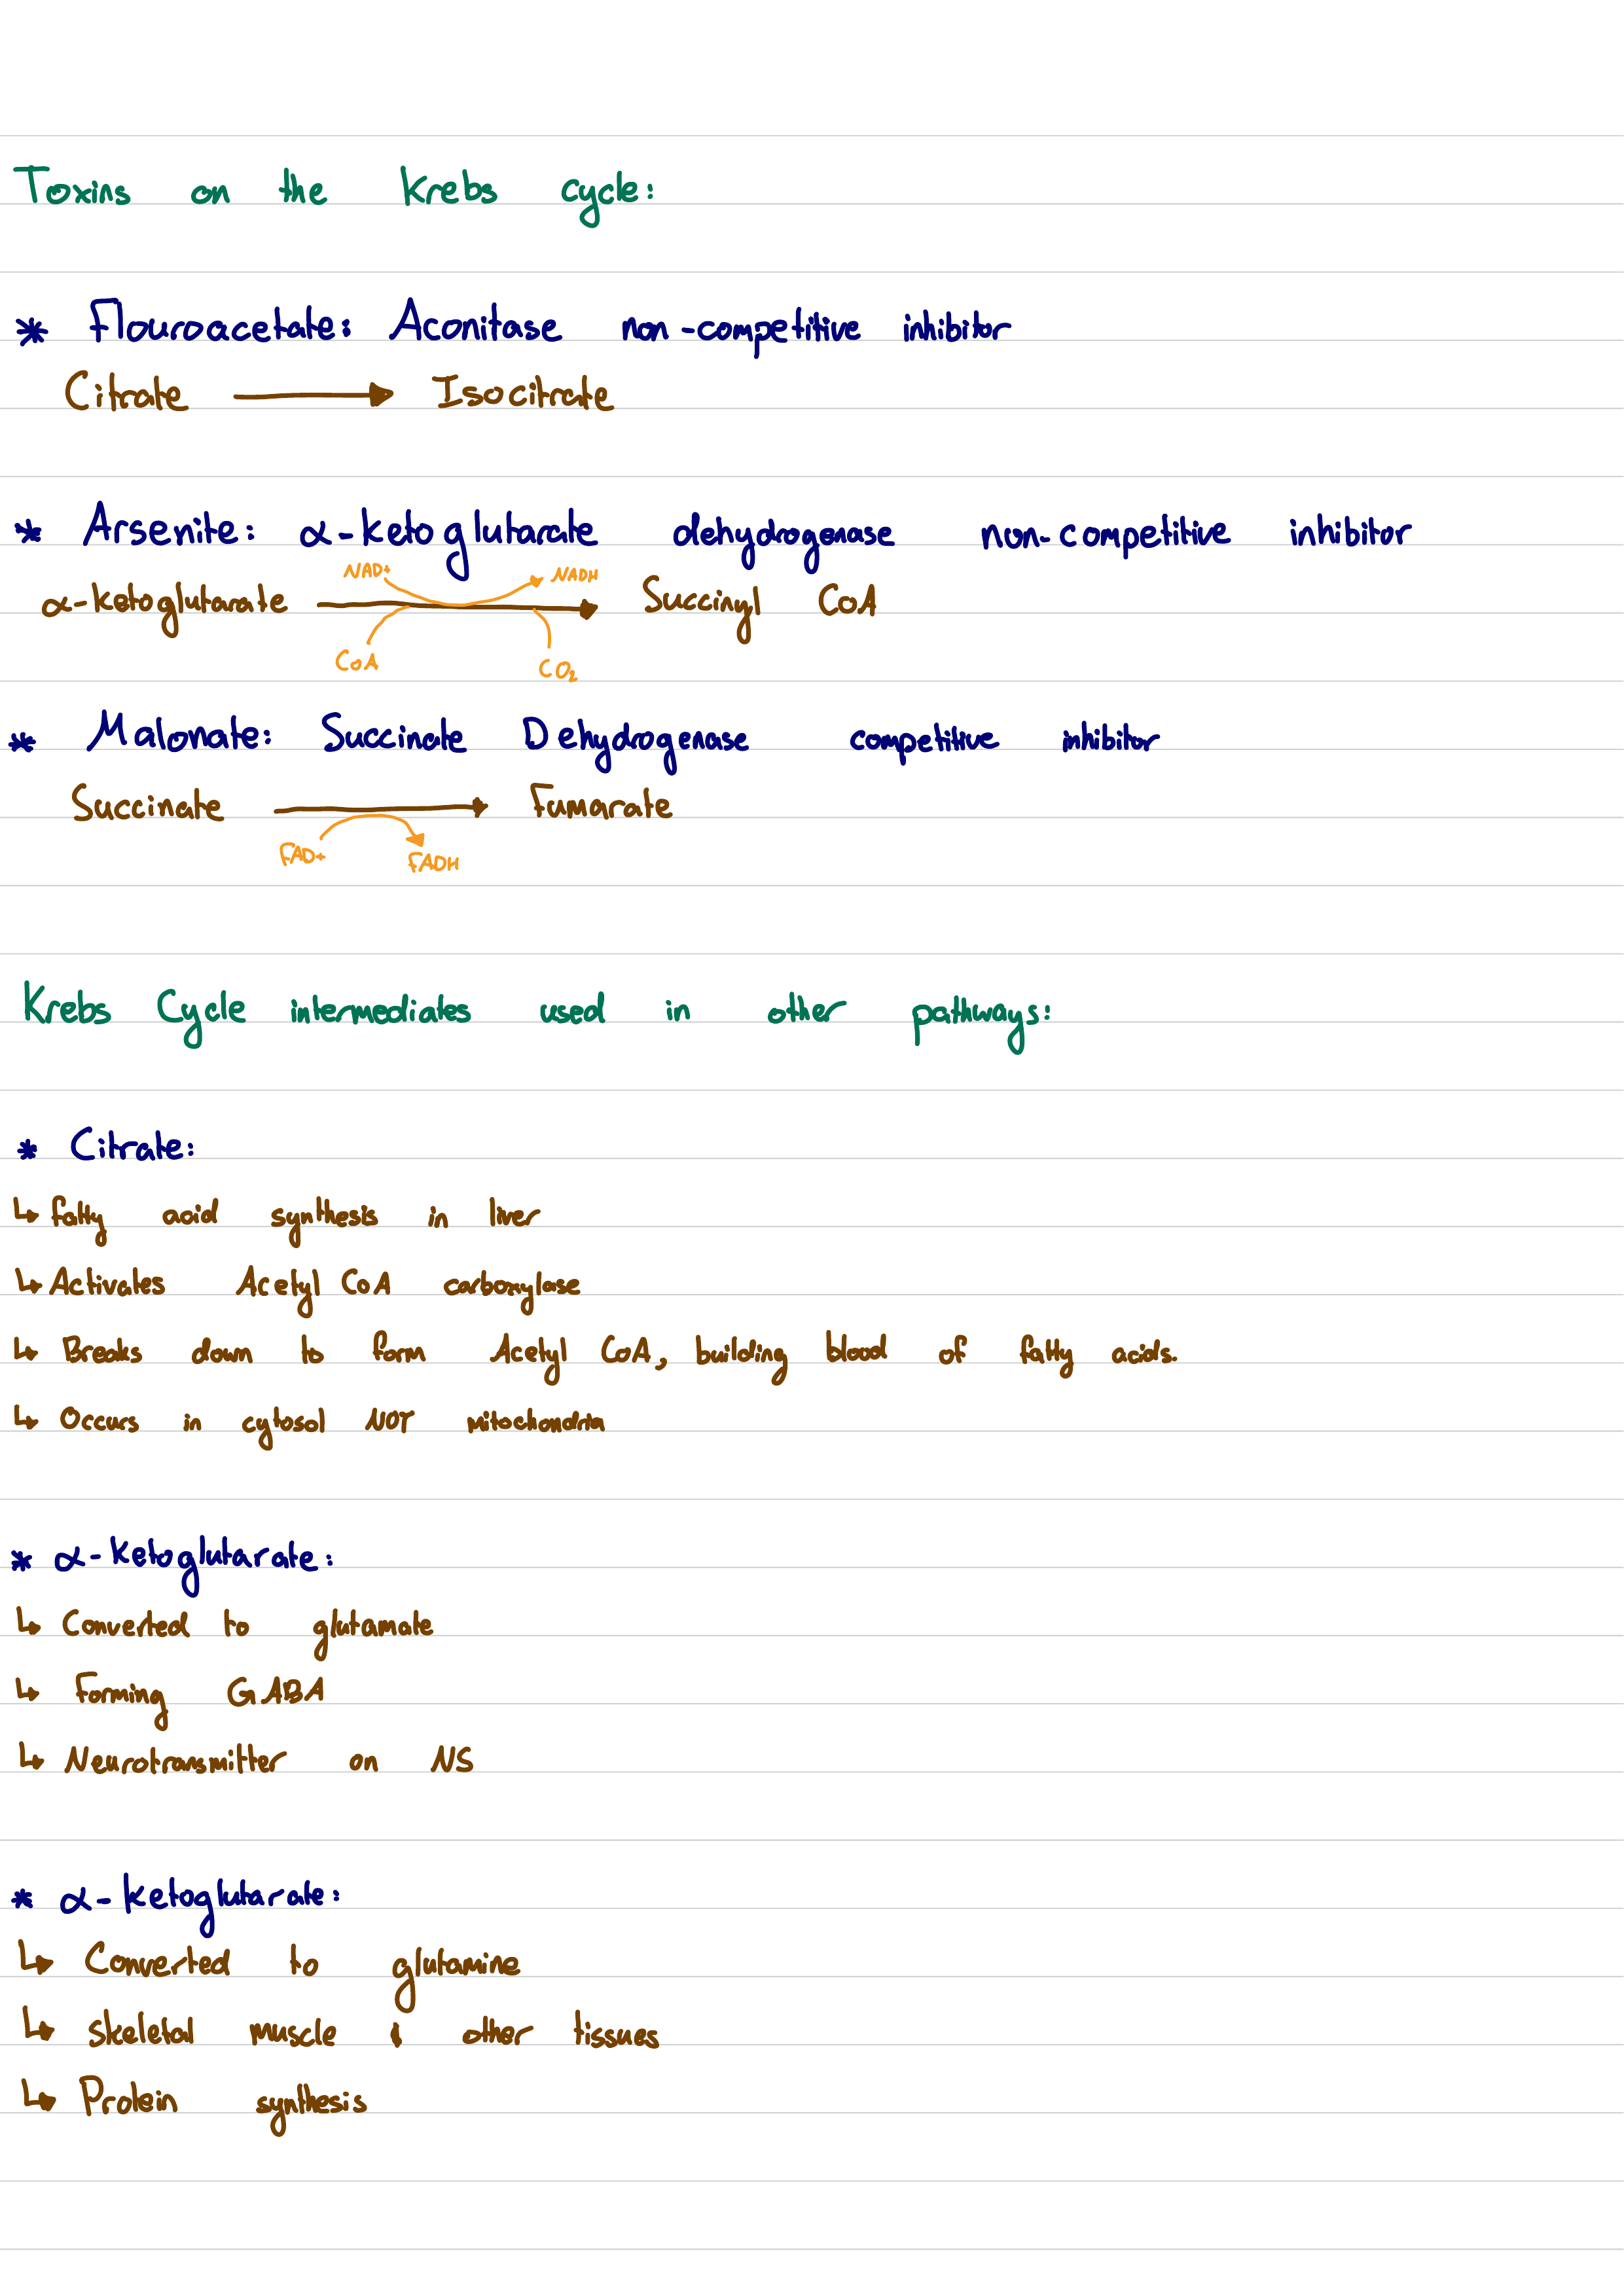 Toxins on the Krebs cycle:
* Flouroacetate: Aconitase non-competitive inhibitor
Citrate → Isocitrate
* Arsenite: α-ketoglutarate dehydrogenase non-competitive inhibitor
NAD+ NADH
α-ketoglutarate → Succinyl CoA
CoA CO₂
* Malonate: Succinate Dehydrogenase competitive inhibitor
Succinate → Fumarate
FAD+ FADH
Krebs Cycle intermediates used in other pathways:
* Citrate:
↳ fatty acid synthesis in liver
↳ Activates Acetyl CoA carboxylase
↳ Breaks down to form Acetyl CoA, building blood of fatty acids.
↳ Occurs in cytosol NOT mitochondria
* α-ketoglutarate:
↳ Converted to glutamate
↳ Forming GABA
↳ Neurotransmitter on NS
* α-ketoglutarate:
↳ Converted to glutamine
↳ skeletal muscle & other tissues
↳ Protein synthesis